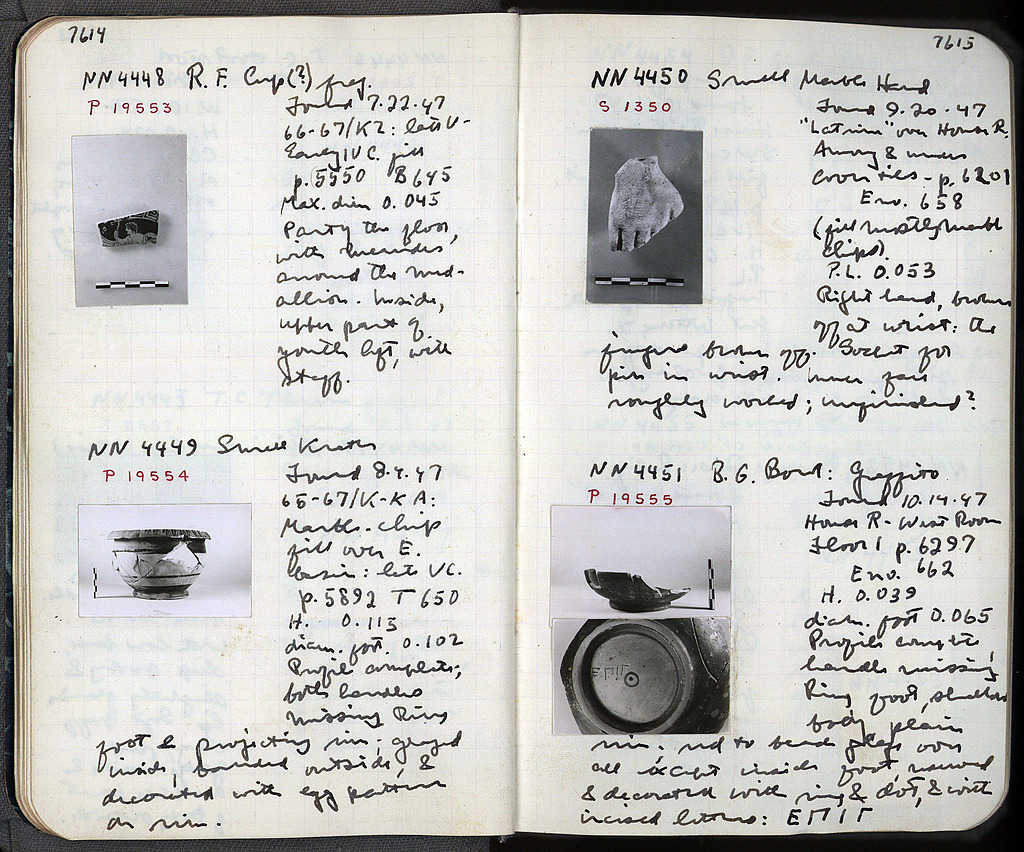 7614
NN 4448 R. F. Cup(?) frag.
P 19553
Found 7.22.47
66-67/K2: late V-
Early IV C. fill
p. 5550 B 645
Max. dim 0.045
Part of the floor,
with
around the med-
allion. Inside,
upper part of
youth left, with
staff.
NN 4449 Small Krater
P 19554
Found 8.4.47
65-67/K-K A:
Marble-chip
fill over E.
basin: late V C.
p. 5892 T 650
H. 0.113
diam. foot. 0.102
Profile complete;
both handles
missing Ring
foot & projecting rim; glazed
inside, banded outside, &
decorated with egg pattern
on rim.
7615
NN 4450 Small Marble Hand
S 1350
Found 9.20.47
"Latrine" over House R.
Among & under
cover tiles - p. 6201
Env. 658
(fill mostly marble
chips).
P.L. 0.053
Right hand, broken
off at wrist: the
fingers broken off. Socket for
pin in wrist. Inner face
roughly worked; unfinished?
NN 4451 B. G. Bowl: Graffito
P 19555
Found 10.14.47
House R - West Room
Floor 1 p. 6297
Env. 662
H. 0.039
diam. foot 0.065
Profile complete,
handle missing
Ring foot, shallow
body, plain
rim. red to black glaze over
all except inside foot, reserved
& decorated with ring & dot, & with
incised letters: ΕΠΙΓ